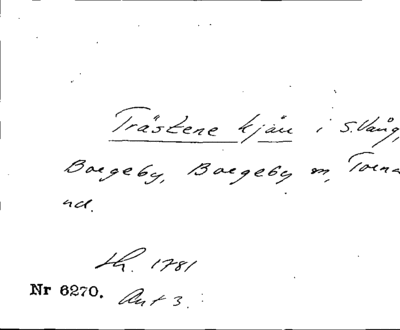 Trästene kjän i S. Vång,
Borgeby, Borgeby sn, Torna
hd.
Lh. 1781
Nr 6270. Ant 3.